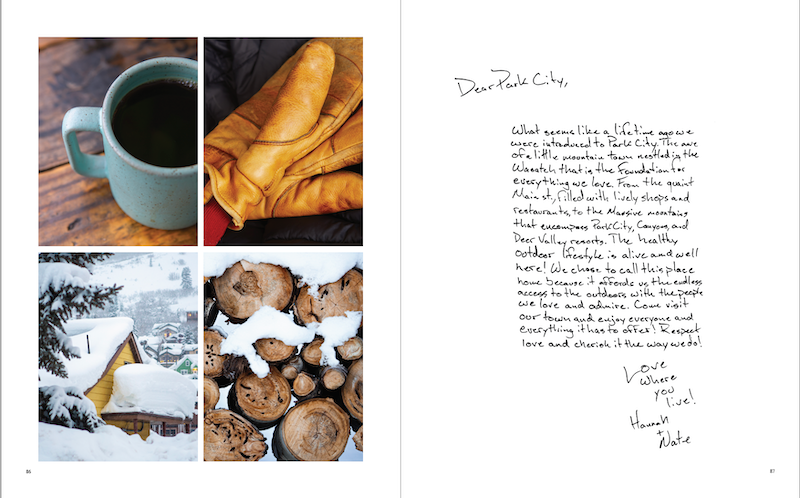 Dear Park City,
What seems like a lifetime ago we
were introduced to Park City. The awe
of a little mountain town nestled in the
Wasatch that is the Foundation for
everything we love. From the quaint
Main st., filled with lively shops and
restaurants, to the Massive mountains
that encompass Park City, Canyons, and
Deer Valley resorts. The healthy
outdoor lifestyle is alive and well
here! We chose to call this place
home because it affords us the endless
access to the outdoors with the people
we love and admire. Come visit
our town and enjoy everyone and
everything it has to offer! Respect
love and cherish it the way we do!
Love
where
you
live!
Hannah
+
Nate
86
87